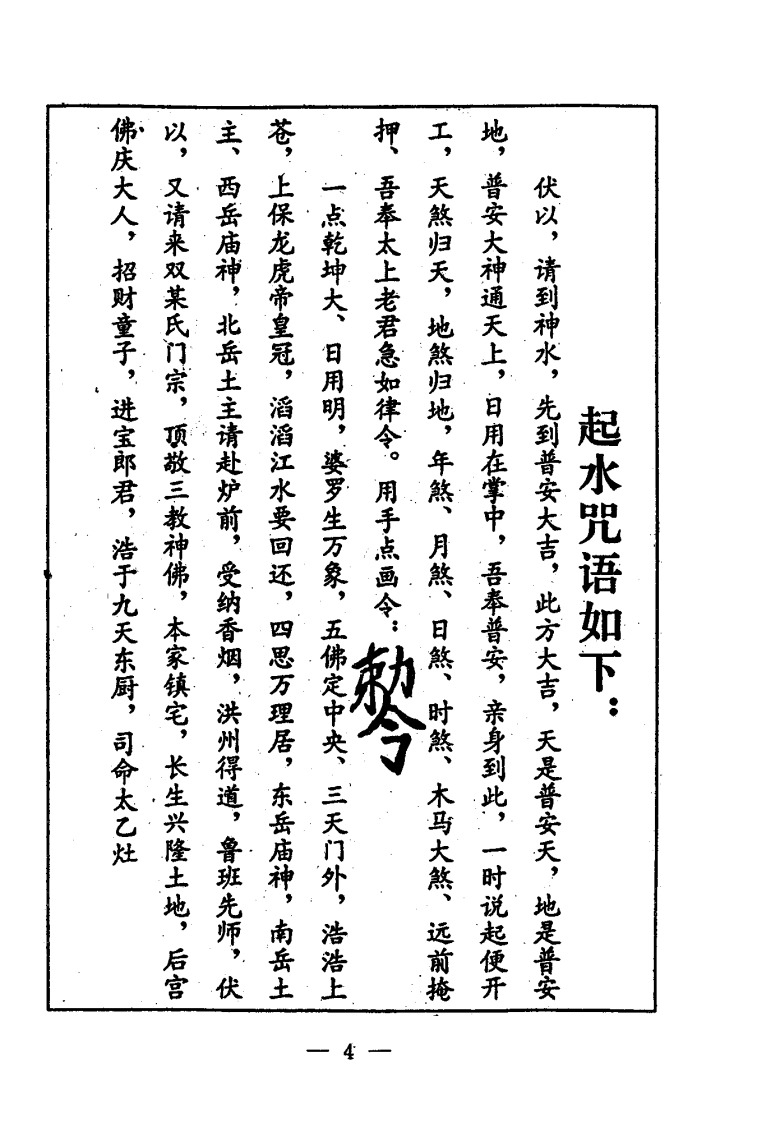 起水咒语如下：
伏以，请到神水，先到普安大吉，此方大吉，天是普安天，地是普安
地，普安大神通天上，日用在掌中，吾奉普安，亲身到此，一时说起便开
工，天煞归天，地煞归地，年煞、月煞、日煞、时煞、木马大煞、远前掩
押、吾奉太上老君急如律令。用手点画令：
勅令
一点乾坤大、日用明，婆罗生万象，五佛定中央、三天门外，浩浩上
苍，上保龙虎帝皇冠，滔滔江水要回还，四思万理居，东岳庙神，南岳土
主、西岳庙神，北岳土主请赴炉前，受纳香烟，洪州得道，鲁班先师，伏
以，又请来双某氏门宗，顶敬三教神佛，本家镇宅，长生兴隆土地，后宫
佛庆大人，招财童子，进宝郎君，浩于九天东厨，司命太乙灶
— 4 —